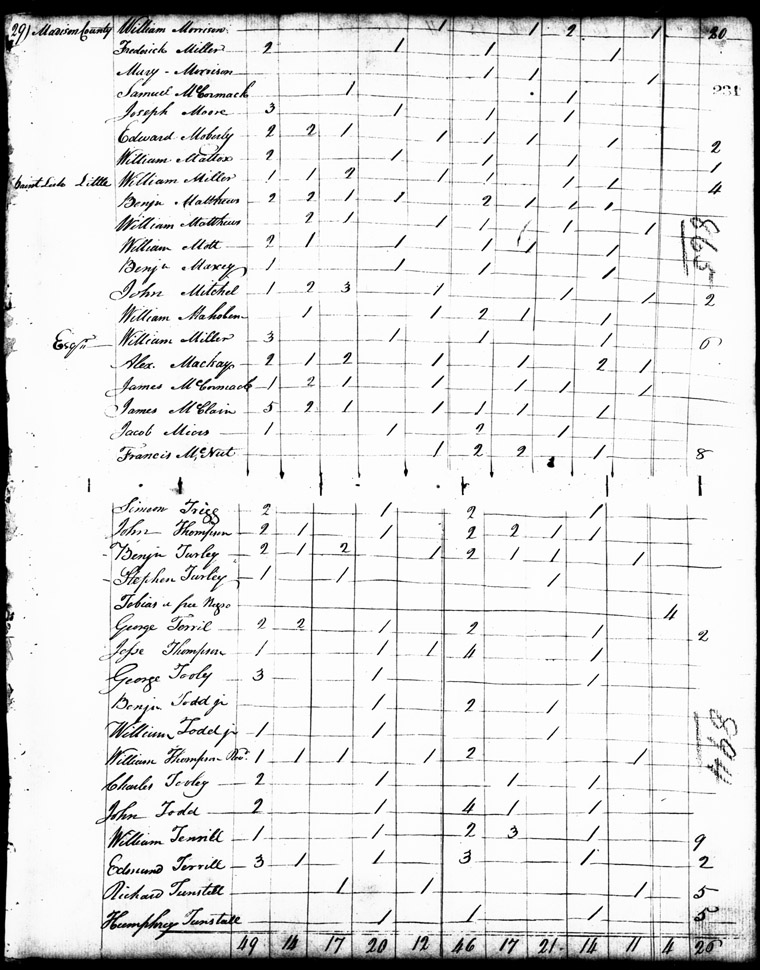 29) Madison County William Morrison 1 1 2 1 20
Frederick Miller 2 1 1 1
Mary Morrison 1 1 1
Samuel McCormack 1 1
231
Joseph Moore 3 1 1 1
Edward Moberly 2 2 1 1 1 1 1 2
William Mattox 2 1 1 1 1
Little William Miller 1 1 2 1 1 1 1 4
Benja Matthews 2 2 1 1 2 1 1 1
William Matthews 2 1 1 1 1 1
William Mott 2 1 1 1 1 1
Benja Maxey 1 1 1 1
John Mitchel 1 2 3 1 1 1 2
William 1 1 2 1 1
Esqr William Miller 3 1 1 1 6
Alex. Mackay 2 1 2 1 1 2 1
James McCormack 1 2 1 1 1 1 1
James McClain 5 2 1 1 1 1 1
Jacob Miers 1 1 2 1
Francis McNut 1 2 2 1 8
598
Simeon Trigg 2 1 2 1
John Thompson 2 1 1 2 2 1 1
Benja Turley 2 1 2 1 2 1 1 1
Stephen Turley 1 1 1
Tobias a free Negro 4
George Terril 2 2 1 2 1 2
Jesse Thompson 1 1 1 4 1
George Tooly 3 1 1
Benja Todd jr 1 2 1
William Todd jr 1 1 1
William Thompson Rev. 1 1 1 1 2 1
Charles Tooley 2 1 1 1
John Todd 2 1 4 1 1
William Terrill 1 1 2 3 1 9
Edmund Terrill 3 1 1 3 1 2
Richard Tunstall 1 1 1 5
Humphrey Tunstall 1 1 1 5
49 14 17 20 12 46 17 21 14 11 4 26